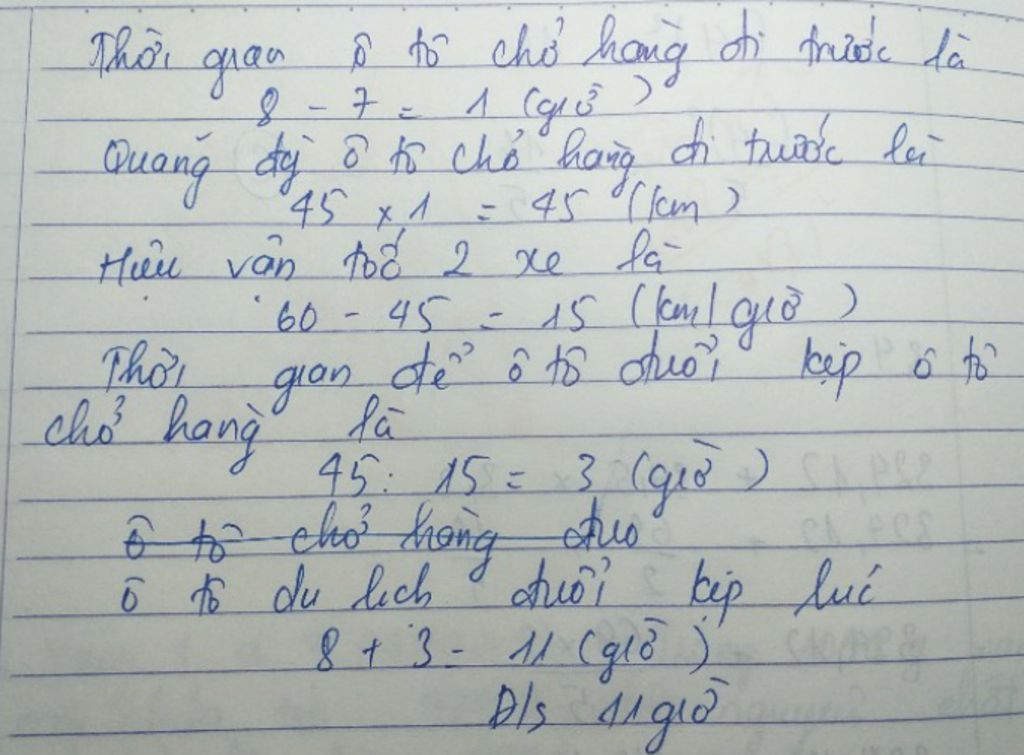 Thời gian ô tô chở hàng đi trước là
8 - 7 = 1 (giờ)
Quãng đg ô tô chở hàng đi trước là
45 x 1 = 45 (km)
Hiệu vận tốc 2 xe là
60 - 45 = 15 (km/giờ)
Thời gian để ô tô đuổi kịp ô tô
chở hàng là
45 : 15 = 3 (giờ)
ô tô chở hàng đuo
ô tô du lịch đuổi kịp lúc
8 + 3 = 11 (giờ)
Đ/s 11 giờ